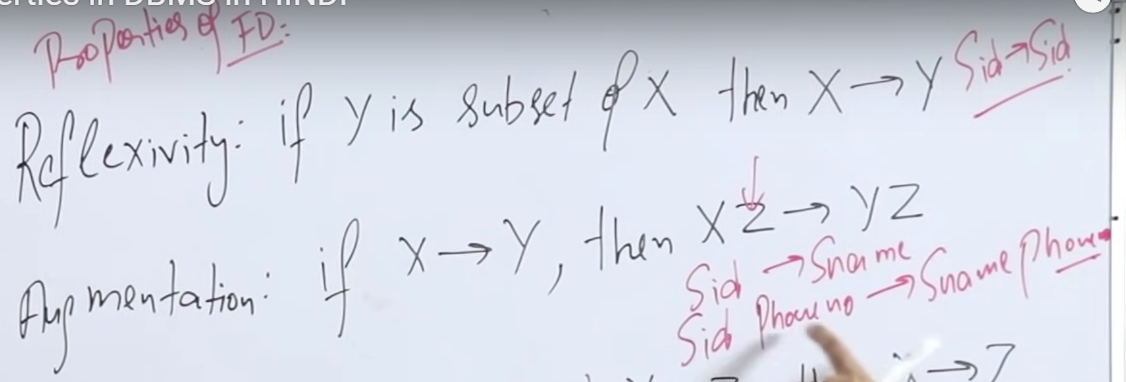 erties in DBMS in HINDI
Properties of FD:
Reflexivity: if Y is subset of X then X→Y Sid→Sid
Augmentation: if X→Y, then XZ→YZ
Sid →Sname
Sid Phone no →Sname Phone
→Z